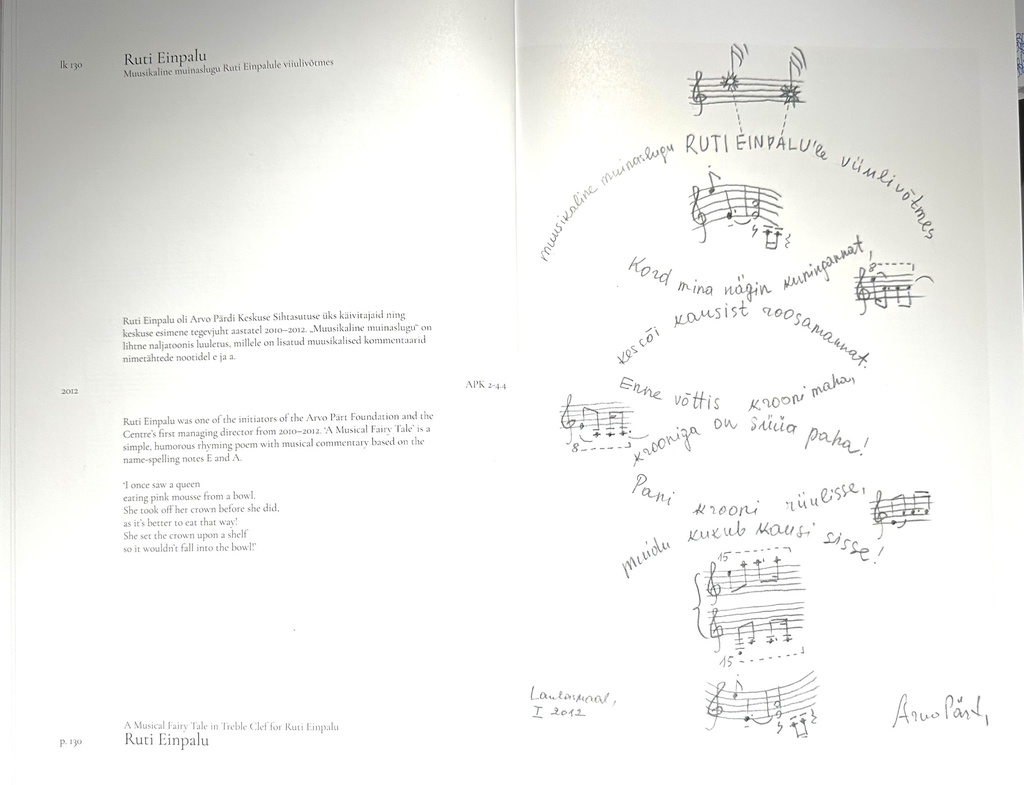 lk 130
Ruti Einpalu
Muusikaline muinaslugu Ruti Einpalule viiulivõtmes
Ruti Einpalu oli Arvo Pärdi Keskuse Sihtasutuse üks käivitajaid ning
keskuse esimene tegevjuht aastatel 2010–2012. „Muusikaline muinaslugu” on
lihtne naljatoonis luuletus, millele on lisatud muusikalised kommentaarid
nimetähtede nootidel e ja a.
2012
APK 2-4.4
Ruti Einpalu was one of the initiators of the Arvo Pärt Foundation and the
Centre's first managing director from 2010–2012. ‘A Musical Fairy Tale’ is a
simple, humorous rhyming poem with musical commentary based on the
name-spelling notes E and A.
‘I once saw a queen
eating pink mousse from a bowl.
She took off her crown before she did,
as it's better to eat that way!
She set the crown upon a shelf
so it wouldn't fall into the bowl!’
A Musical Fairy Tale in Treble Clef for Ruti Einpalu
p. 130
Ruti Einpalu
muusikaline muinaslugu RUTI EINPALU'le viiulivõtmes
Kord mina nägin kuningannat,
8
kes sõi kausist roosamannat.
Enne võttis krooni maha,
krooniga on süüa paha!
8
Pani krooni riiulisse,
muidu kukub kausi sisse!
15
15
Laulasmaal,
I 2012
Arvo Pärt,